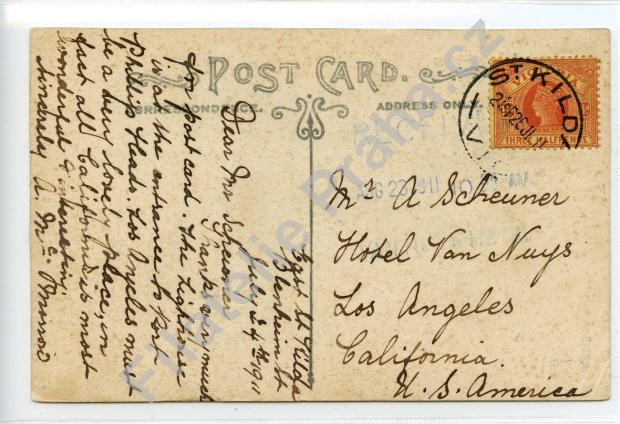 POST CARD.
CORRESPONDENCE.
ADDRESS ONLY.
East St Kilda
Blenheim St
July 24th 1911
Dear Mr Scheuner
Thanks very much
for post card. The lighthouse
is at the entrance to Port
Phillip Heads. Los Angeles must
be a very lovely place, in
fact all California is most
wonderful & interesting.
Sincerely A. Mc
ST KILDA
VIC
THREE HALFPENCE
AUG 23 1911 AM
Mr A Scheuner
Hotel Van Nuys
Los Angeles
California.
U.S. America
Filatelie Praha.cz